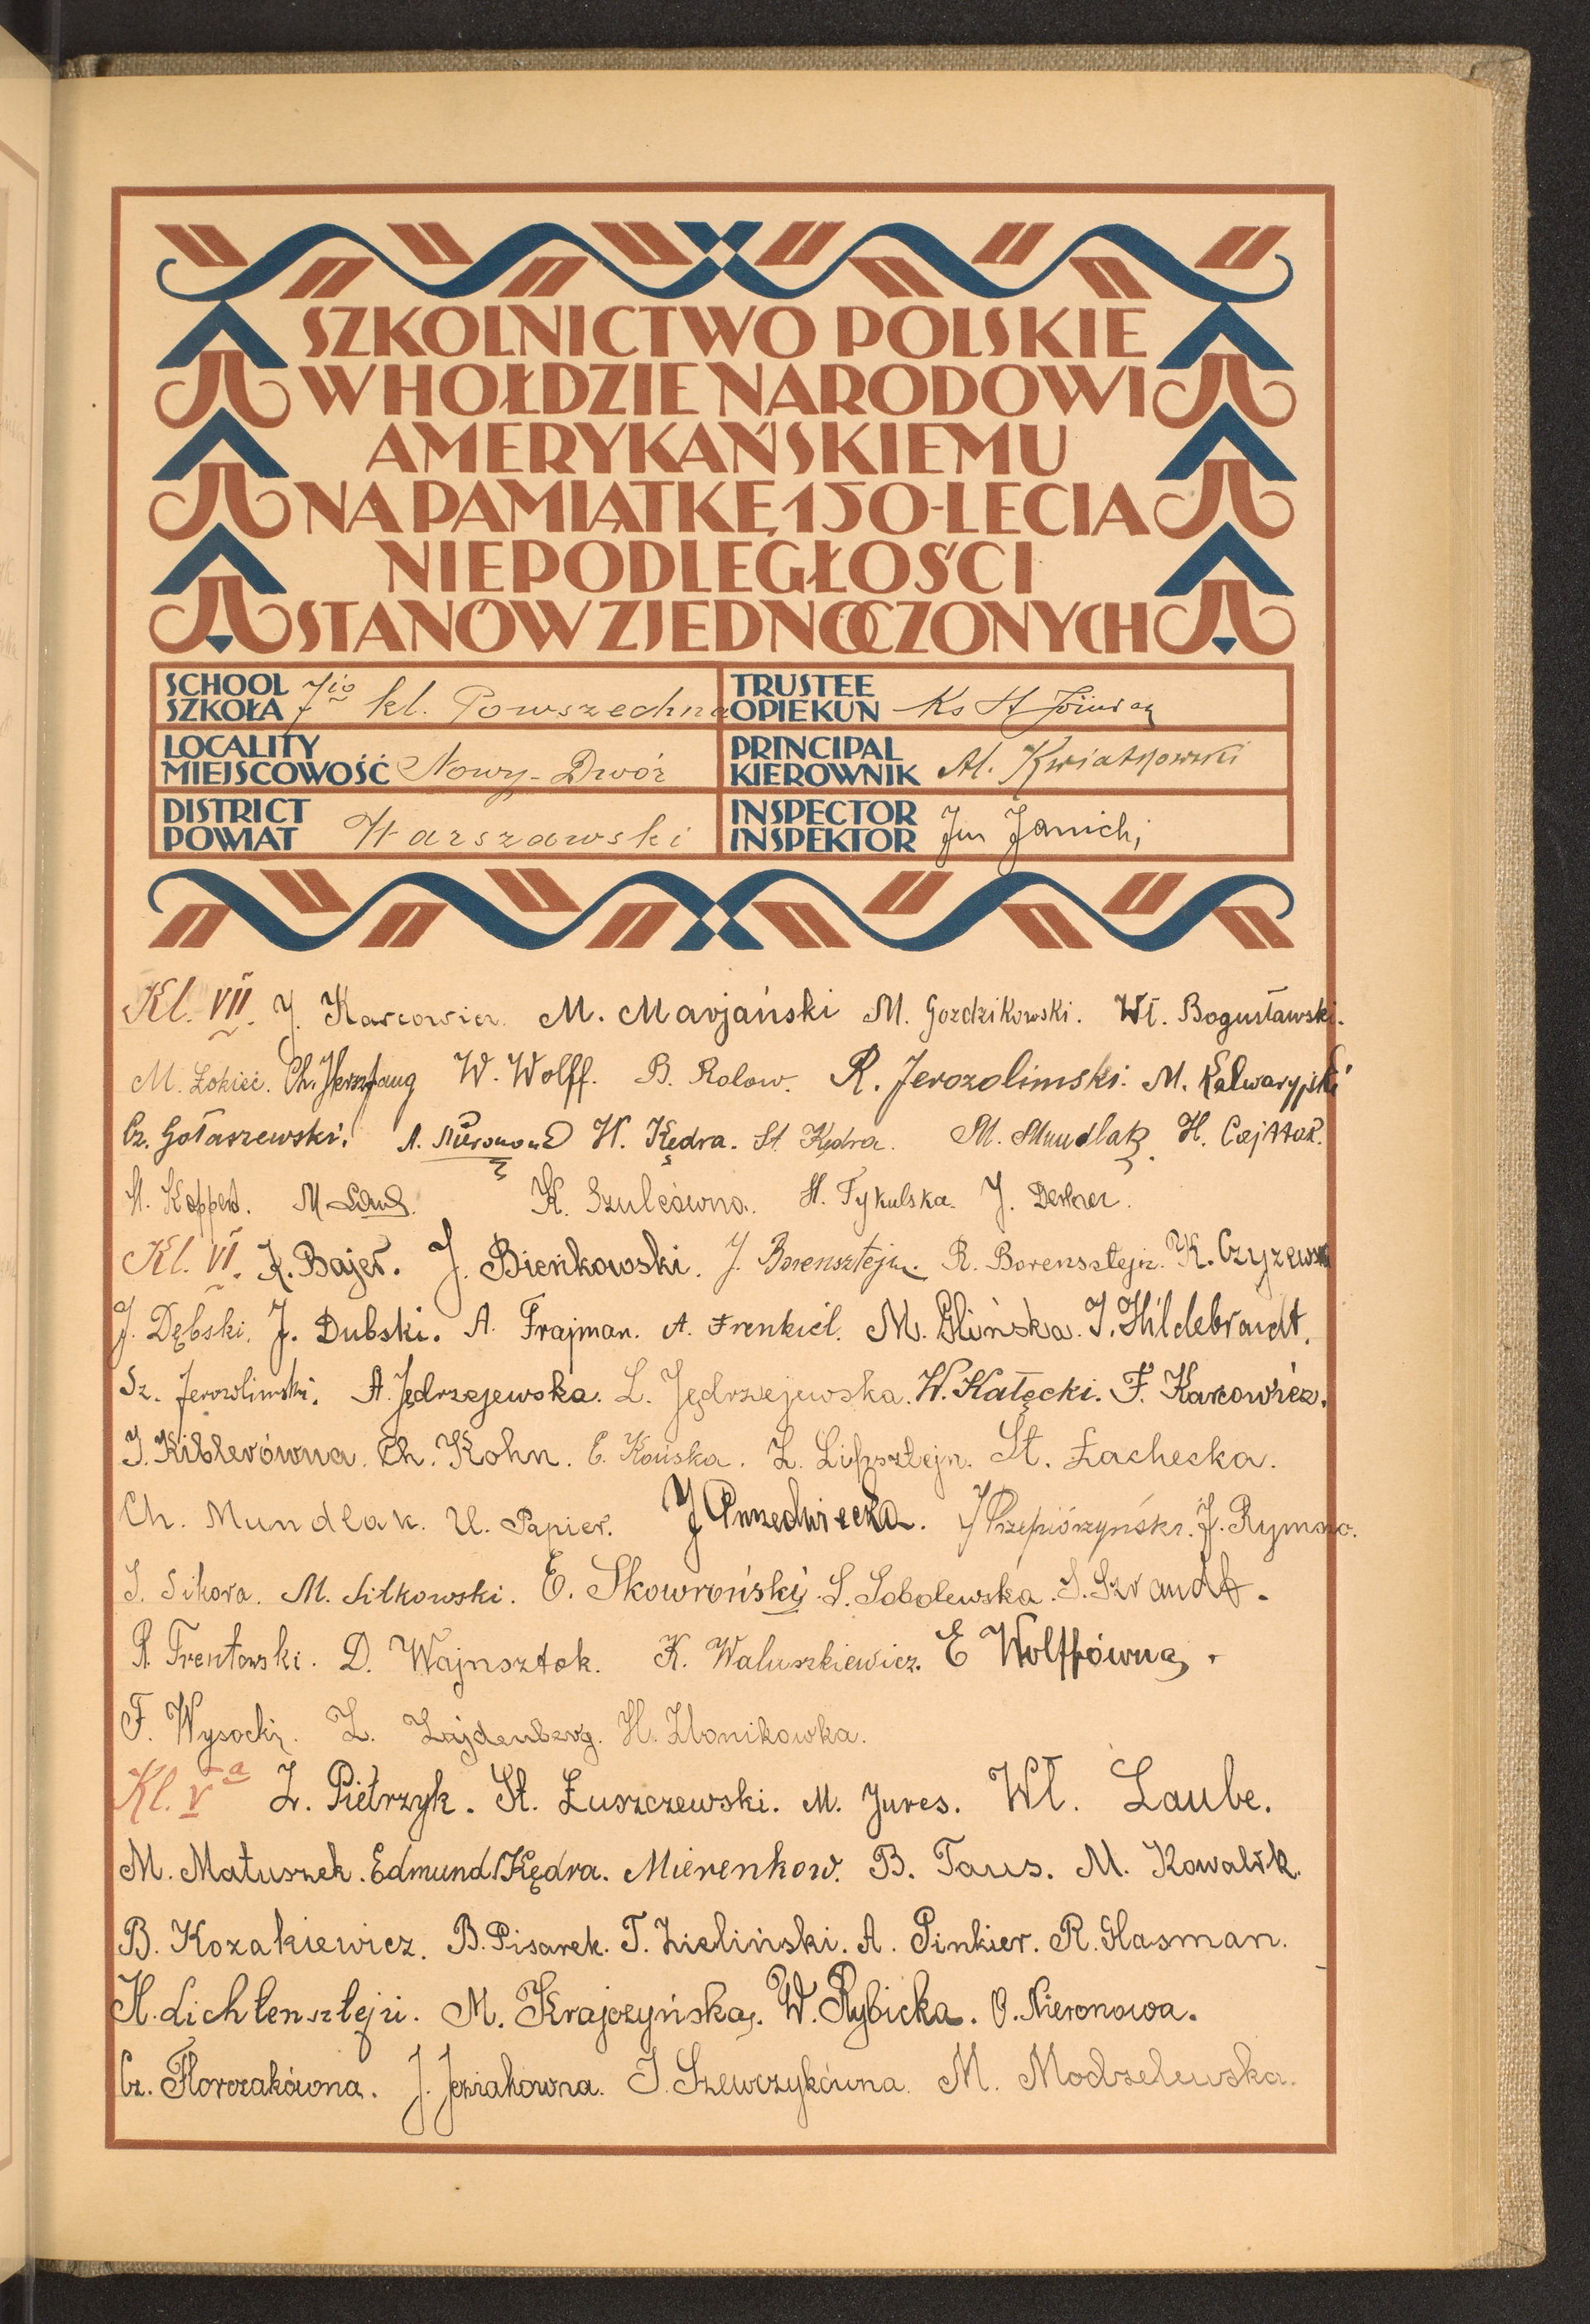 SZKOLNICTWO POLSKIE
W HOŁDZIE NARODOWI
AMERYKAŃSKIEMU
NA PAMIĄTKĘ 150-LECIA
NIEPODLEGŁOŚCI
STANÓW ZJEDNOCZONYCH
SCHOOL SZKOŁA 7io kl. Powszechna
TRUSTEE OPIEKUN Ks St
LOCALITY MIEJSCOWOŚĆ Nowy-Dwór
PRINCIPAL KIEROWNIK Al. Kwiatkowski
DISTRICT POWIAT Warszawski
INSPECTOR INSPEKTOR Janicki
Kl. VII. J. Karcowicz. M. Marjański M. Gozdzikowski. Wł. Bogusławski.
M. Łokieć. Ch. Herszfang W. Wolff. B. Rolow. R. Jerozolimski. M. Kalwaryjski
Cz. Gołaszewski. A. W. Kędra. St. Kędra. M. Mundlak. H. Cajtak.
H. Koppen. M. K. Szulcówna. H. Tykulska. J.
Kl. VI. K. Bajer. J. Bieńkowski. J. Borensztejn. R. Borensztejn. K. Czyzewski
J. Dębski. J. Dubski. A. Frajman. A. Frenkiel. M. Glińska. J. Hildebrandt.
Sz. Jerozolimski. A. Jędrzejewska. L. Jędrzejewska. W. Kałęcki. F. Karcowicz.
J. Kiblerówna. Ch. Kohn. E. Końska. L. Lipsztejn. St. Łachecka.
Ch. Mundlak. U. Papier. J Przedwiecka. J Przepiórzyński. J. Rymszo.
J. Sikora. M. Sitkowski. E. Skowroński. S. Sobolewska. J. Szrandt.
R. Trentowski. D. Wajnsztok. K. Waluszkiewicz. E Wolffówna.
F. Wysocki. L. Zajdenberg. H. Zbonikowka.
Kl. Va Z. Pietrzyk. St. Łuszczewski. M. Jures. Wł. Laube.
M. Matuszek. Edmund Kędra. Mierenkow. B. Taus. M. Kowalik.
B. Kozakiewicz. B. Pisarek. T. Zieliński. A. Pinkier. R. Glasman.
H. Lichtensztejn. M. Krajczyńska. W. Rybicka. O. Nieronowa.
Cz. Florczakówna. J. Jeziakowna. J. Szewczykówna. M. Modzelewska.